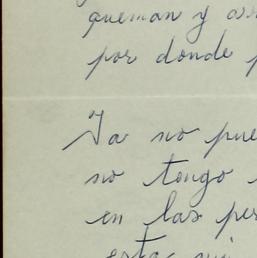 queman y
por donde
Ya no pue
no tengo
en las per
esta mi